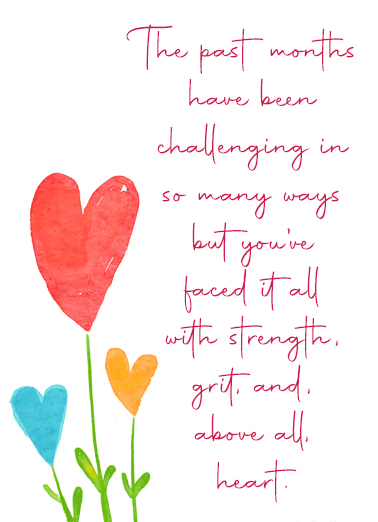 The past months
have been
challenging in
so many ways
but you've
faced it all
with strength,
grit, and,
above all,
heart.